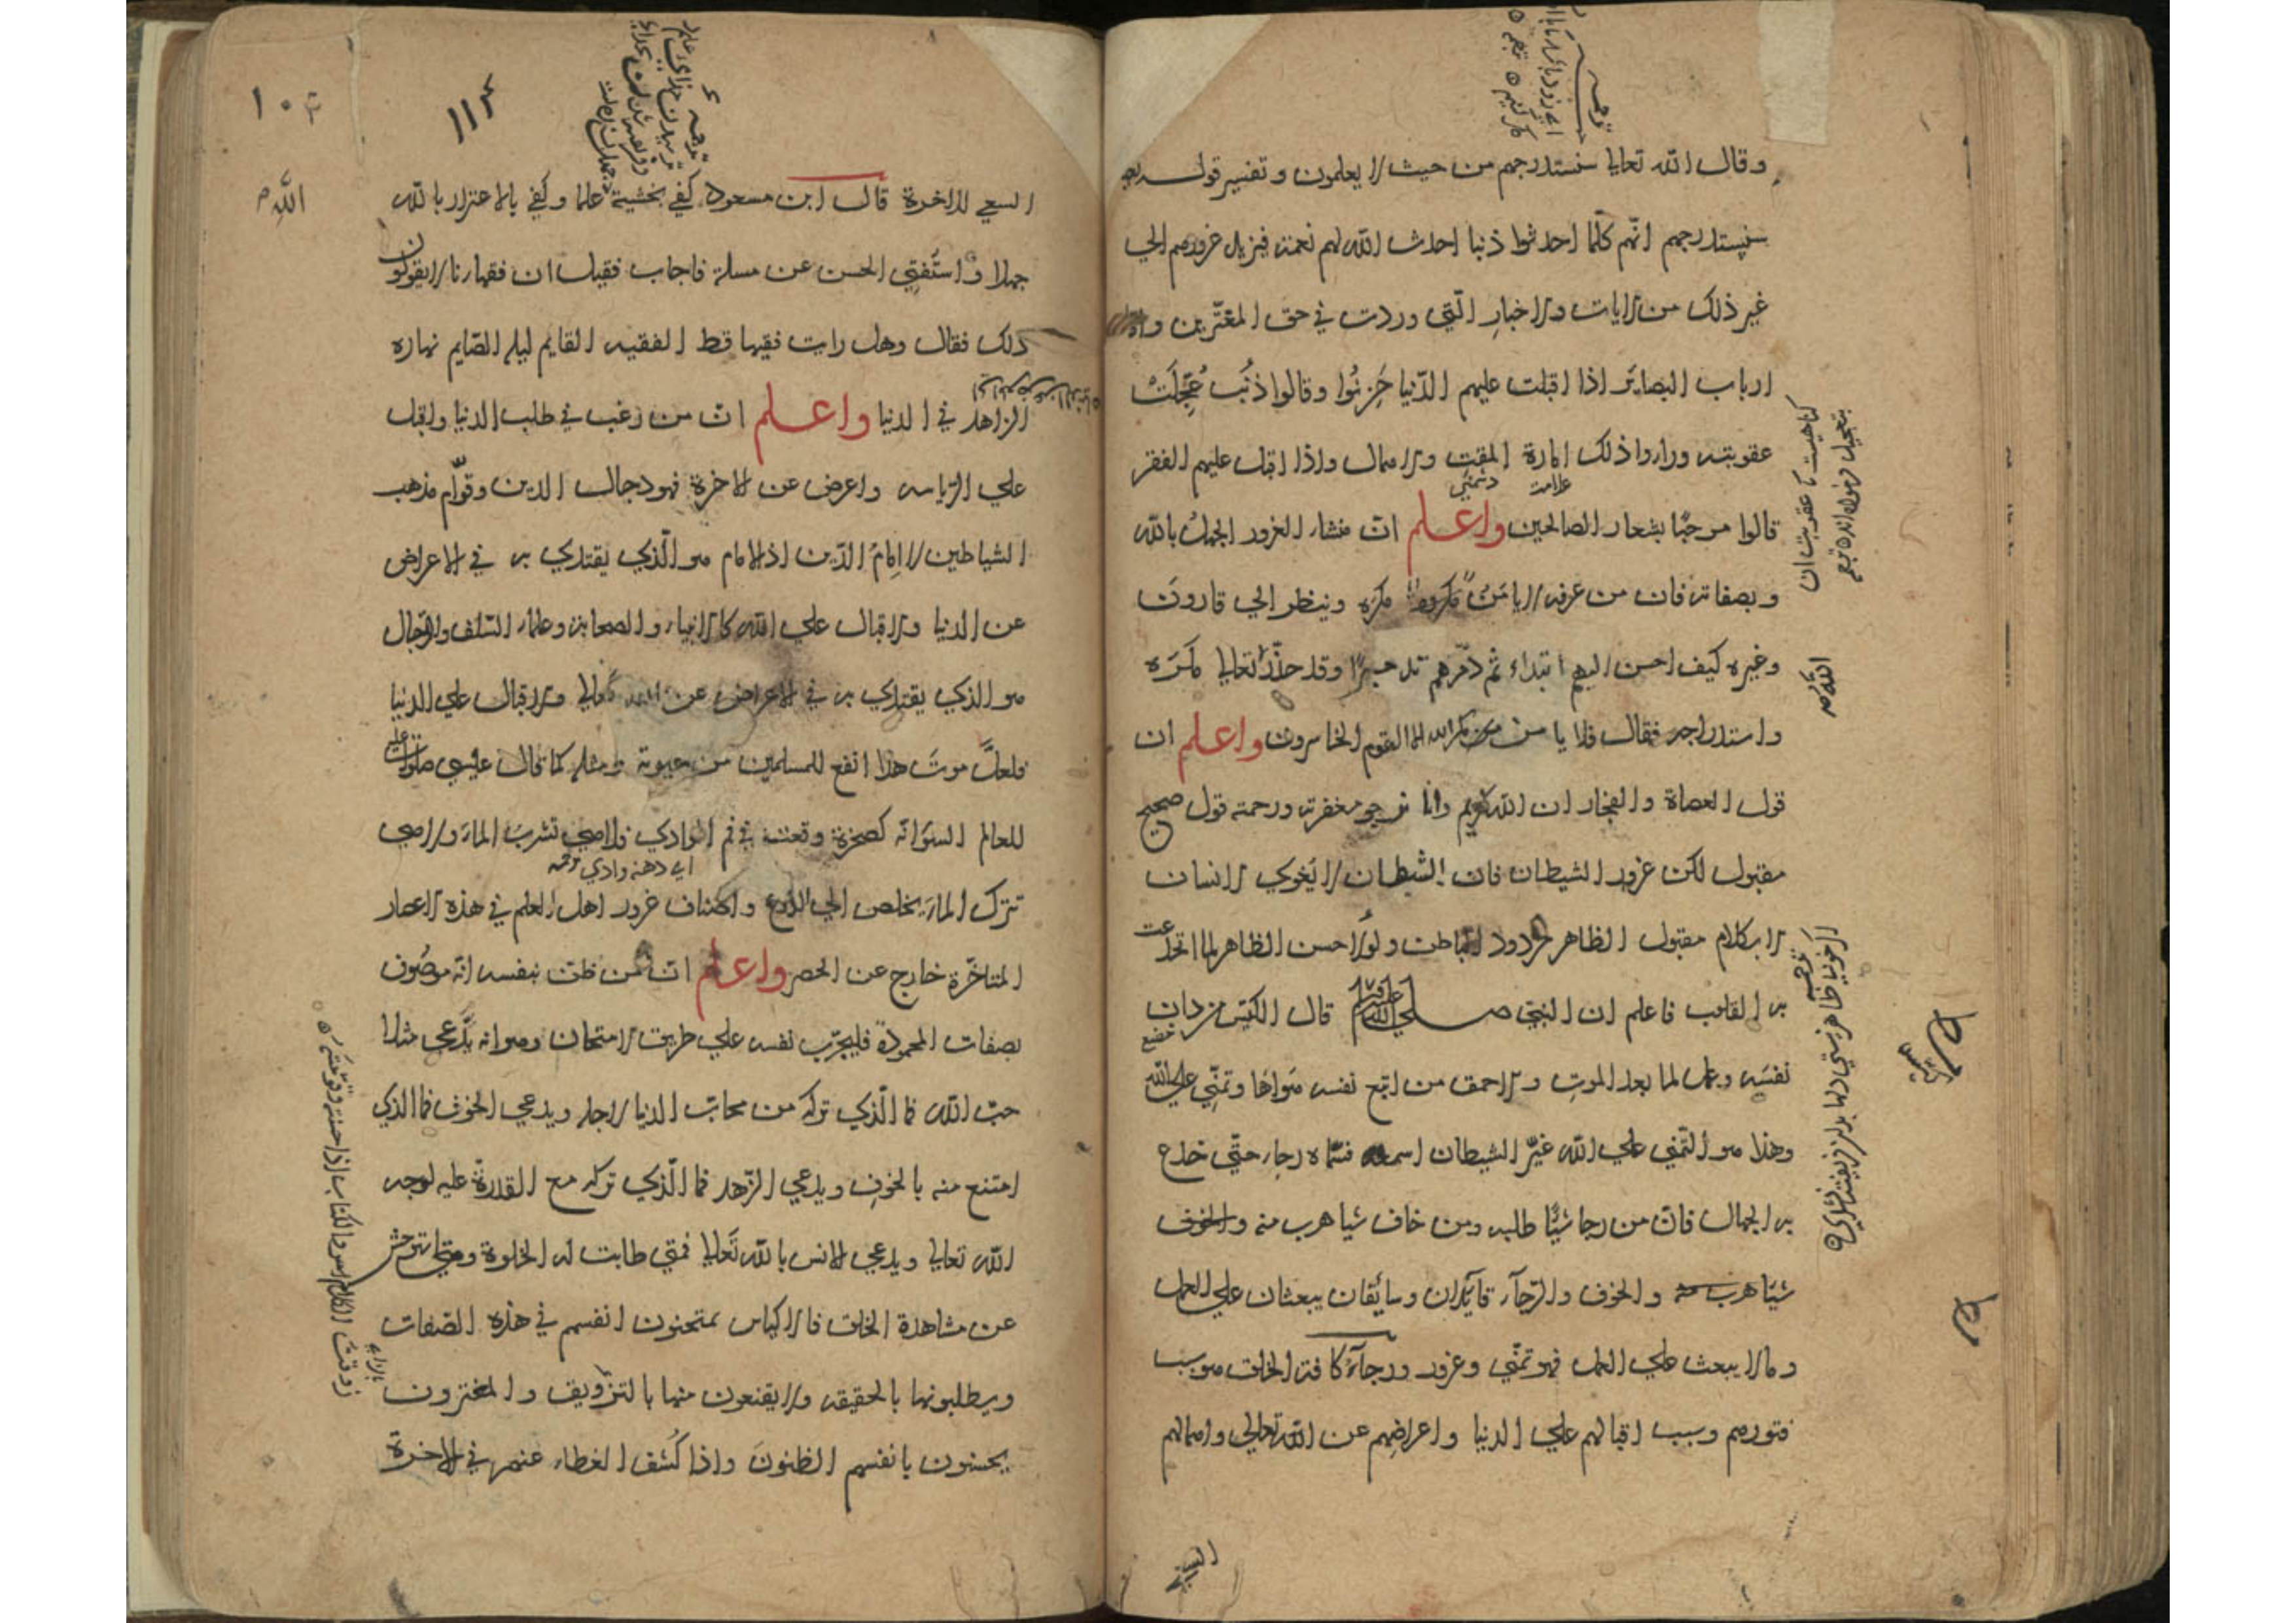 وقال الله تعالى سنستدرجهم من حيث لا يعلمون وتفسير قوله
سنستدرجهم انهم كلّما احدثوا ذنبا احدث الله لهم نعمة فيزيد غرورهم الى
غير ذلك من الايات والاخبار الّتي وردت في حق المغترّين
ارباب البصائر اذا اقبلت عليهم الدّنيا حَزِنُوا وقالوا ذنب عُجِّلَتْ
عقوبته وراوا ذلك امارة المقت والاهمال واذا اقبل عليهم الفقر
علامت دشمني
قالوا مرحبًا بشعار الصالحين واعلم انّ منشاء الغرور الجهل بالله
وبصفاته فان من عرفه لا يامن مكره وينظر الى قارون
وغيره كيف احسن اليهم ابتداء ثم دمّرهم تدميرًا وقد حذّر تعالى مكره
واستدراجه فقال فلا يامن مكر الله الا القوم الخاسرون واعلم ان
قول العصاة والفجار ان الله كريم وانا نرجو مغفرته ورحمته قول صحيح
مقبول لكن غرور الشيطان فان الشيطان لا يغوي الانسان
الا بكلام مقبول الظاهر مردود الباطن ولولا حسن الظاهر لما انخدعت
به القلوب فاعلم ان النبي صلى الله عليه وسلم قال الكيّس من دان
نفسه وعمل لما بعد الموت والاحمق من اتبع نفسه هواها وتمنّى على الله
وهذا هو التّمني على الله غيّر الشيطان اسمه فسمّاه رجاء حتّى خدع
به الجهال فانّ من رجا شيئًا طلبه ومن خاف شيئا هرب منه والخوف
شيئا هرب منه والخوف والرّجآء قآئدان وسآئقان يبعثان على العمل
وما لا يبعث على العمل فهو تمنّي وغرور ورجآء كافة الخلق هو سبب
فتورهم وسبب اقبالهم على الدنيا واعراضهم عن الله تعالى واهمالهم
السعي
١١٣
السعي للاخرة قال ابن مسعود كفى بخشية الله علما وكفى بالاغترار بالله
جهلا واستُفتي الحسن عن مسئلة فاجاب فقيل ان فقهاءنا لا يقولون
ذلك فقال وهل رايت فقيها قط الفقيه القايم ليله الصّايم نهاره
الزاهد في الدنيا واعلم انّ من رغب في طلب الدنيا واقبل
على الرّياسه واعرض عن الاخرة فهو دجال الدين وقوّام مذهب
الشياطين لا امام الدّين اذ الامام هو الّذي يقتدي به في الاعراض
عن الدنيا والاقبال على الله كالانبياء والصحابة وعلماء السّلف والدّجال
هو الذي يقتدي به في الاعراض عن الله تعالى والاقبال على الدنيا
فلعلّ موتَ هذا انفع للمسلمين من حيوته ومثله كما قال عيسى صلوات عليه
للعالم السوء انّه كصخرة وقعت في فم الوادي فلا هي تشرب الماء ولا هي
اي دهنه وادي
تترك الماء يخلص الى الزرع واصناف غرور اهل العلم في هذه الاعصار
المتاخّرة خارج عن الحصر واعلم انّ من ظنّ بنفسه انّه موصُوف
بصفات المحمودة فليجرّب نفسه على طريق الامتحان وهو انه يدّعي مثلا
حبّ الله فما الّذي تركه من محابّ الدنيا لاجله ويدعي الخوف فما الذي
امتنع منه بالخوف ويدعي الزّهد فما الّذي تركه مع القدرة عليه لوجه
الله تعالى ويدعي الانس بالله تعالى فمتى طابت له الخلوة ومتى استوحش
عن مشاهدة الخلق فالاكياس يمتحنون انفسهم في هذه الصّفات
ويطلبونها بالحقيقه ولا يقنعون منها بالتزويق والمغترون
يحسنون بانفسهم الظنون واذا كُشف الغطاء عنهم في الاخرة